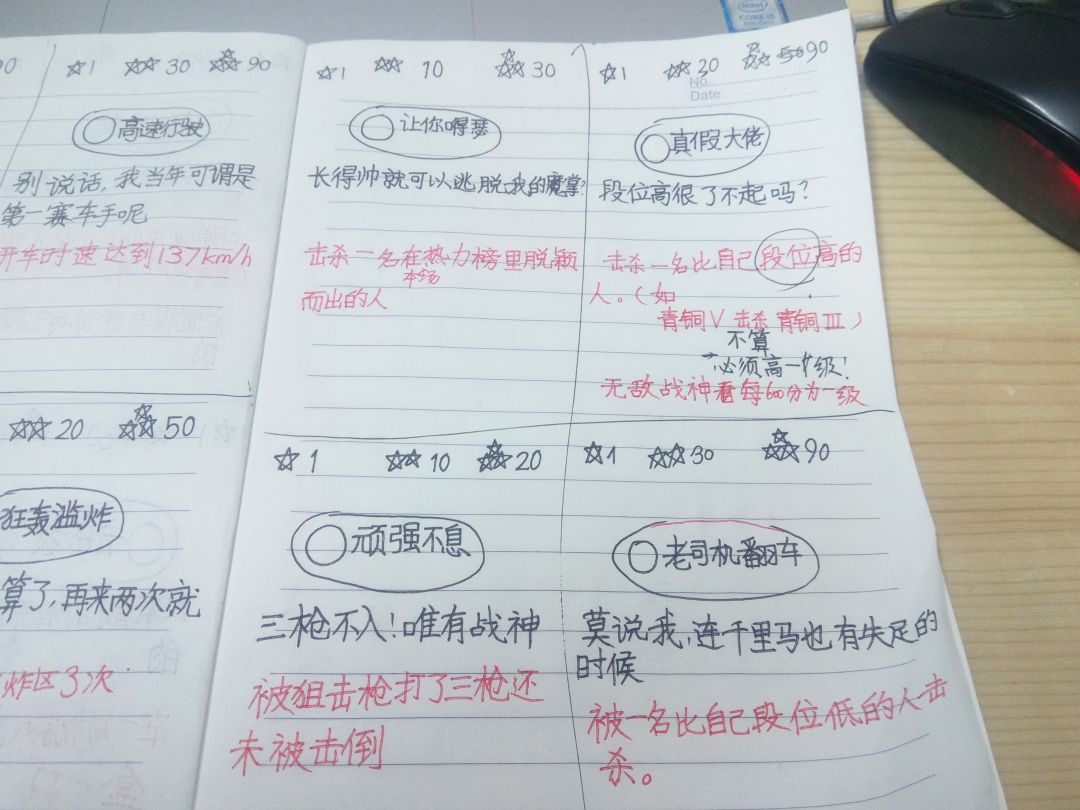 90
☆1 ☆☆30 ☆☆☆90
高速行驶
别说话，我当年可谓是
第一赛车手呢
开车时速达到137km/h
☆☆20 ☆☆☆50
狂轰滥炸
算了，再来两次就
炸区3次
☆1 ☆☆10 ☆☆☆30
让你嘚瑟
长得帅就可以逃脱我的魔掌？
击杀一名在热力榜里脱颖
本场
而出的人
☆1 ☆☆20 ☆☆☆90
No.
Date
真假大佬
段位高很了不起吗？
击杀一名比自己段位高的
人。（如
青铜V击杀青铜III）
不算
→必须高一个级！
无敌战神每600分为一级
☆1 ☆☆10 ☆☆☆20
顽强不息
三枪不入！唯有战神
被狙击枪打了三枪还
未被击倒
☆1 ☆☆30 ☆☆☆90
老司机翻车
莫说我，连千里马也有失足的
时候
被一名比自己段位低的人击
杀。
intel
CORE i5